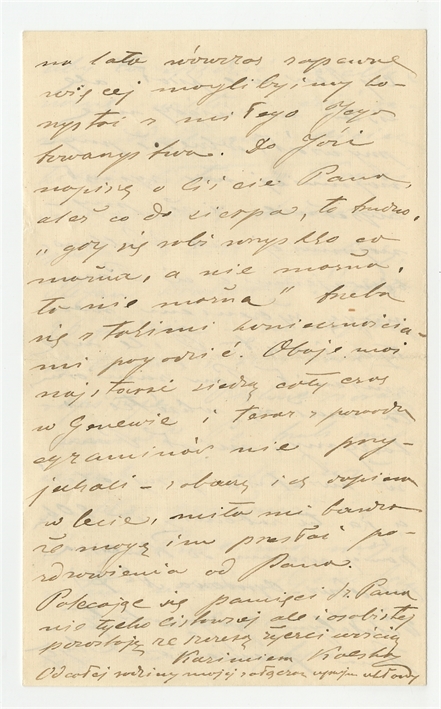 na lato wówczas zapewne
więcej moglibyśmy ko-
rzystać z miłego Jego
towarzystwa. Do Józi
napiszę o liście Pana,
ależ co do sierpa, to trudno,
"gdy się robi wszystko co
można, a nie można,
to nie można" trzeba
się z takimi koniecznościa-
mi pogodzić. Oboje moi
najstarsi siedzą cały czas
w Genewie i teraz z powodu
egzaminów nie przy-
jechali - zobaczę ich dopiero
w lecie, miło mi bardzo
że mogę im przesłać po-
zdrowienia od Pana.
Polecając się pamięci Sz. Pana
nie tylko listownej ale i osobistej
pozostaję ze szczerą życzliwością
Kazimiera
Od całej rodziny mojej załączam wyrazy